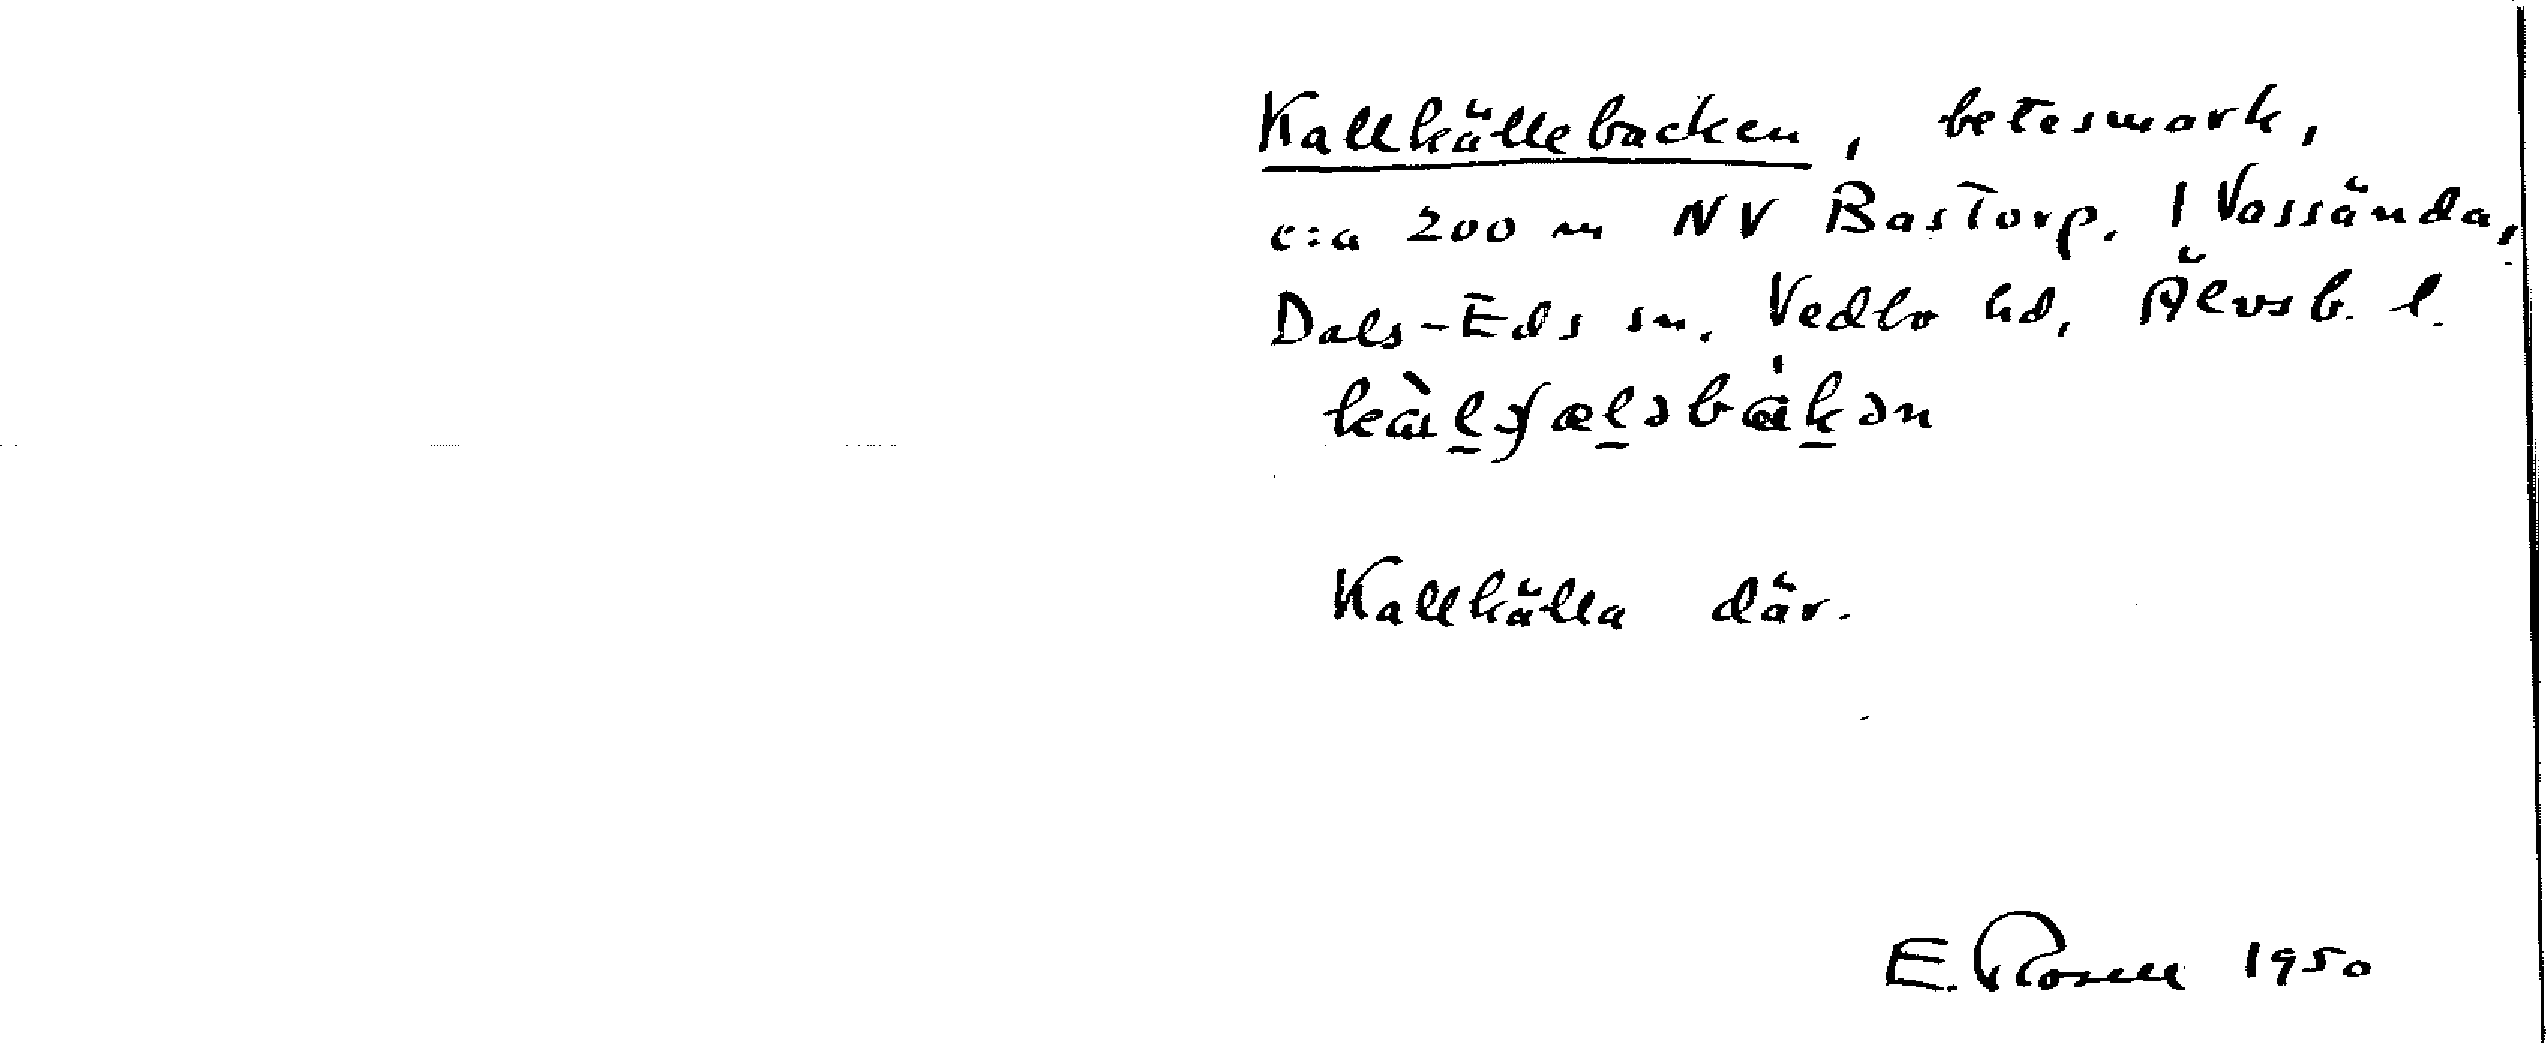 Kallkällebacken, betesmark,
c:a 200 m NV Bastorp, 1 Vassända,
Dals-Eds sn. Vedbo hd, Älvsb. l.
Kallkälla där.
E. Rosell 1950